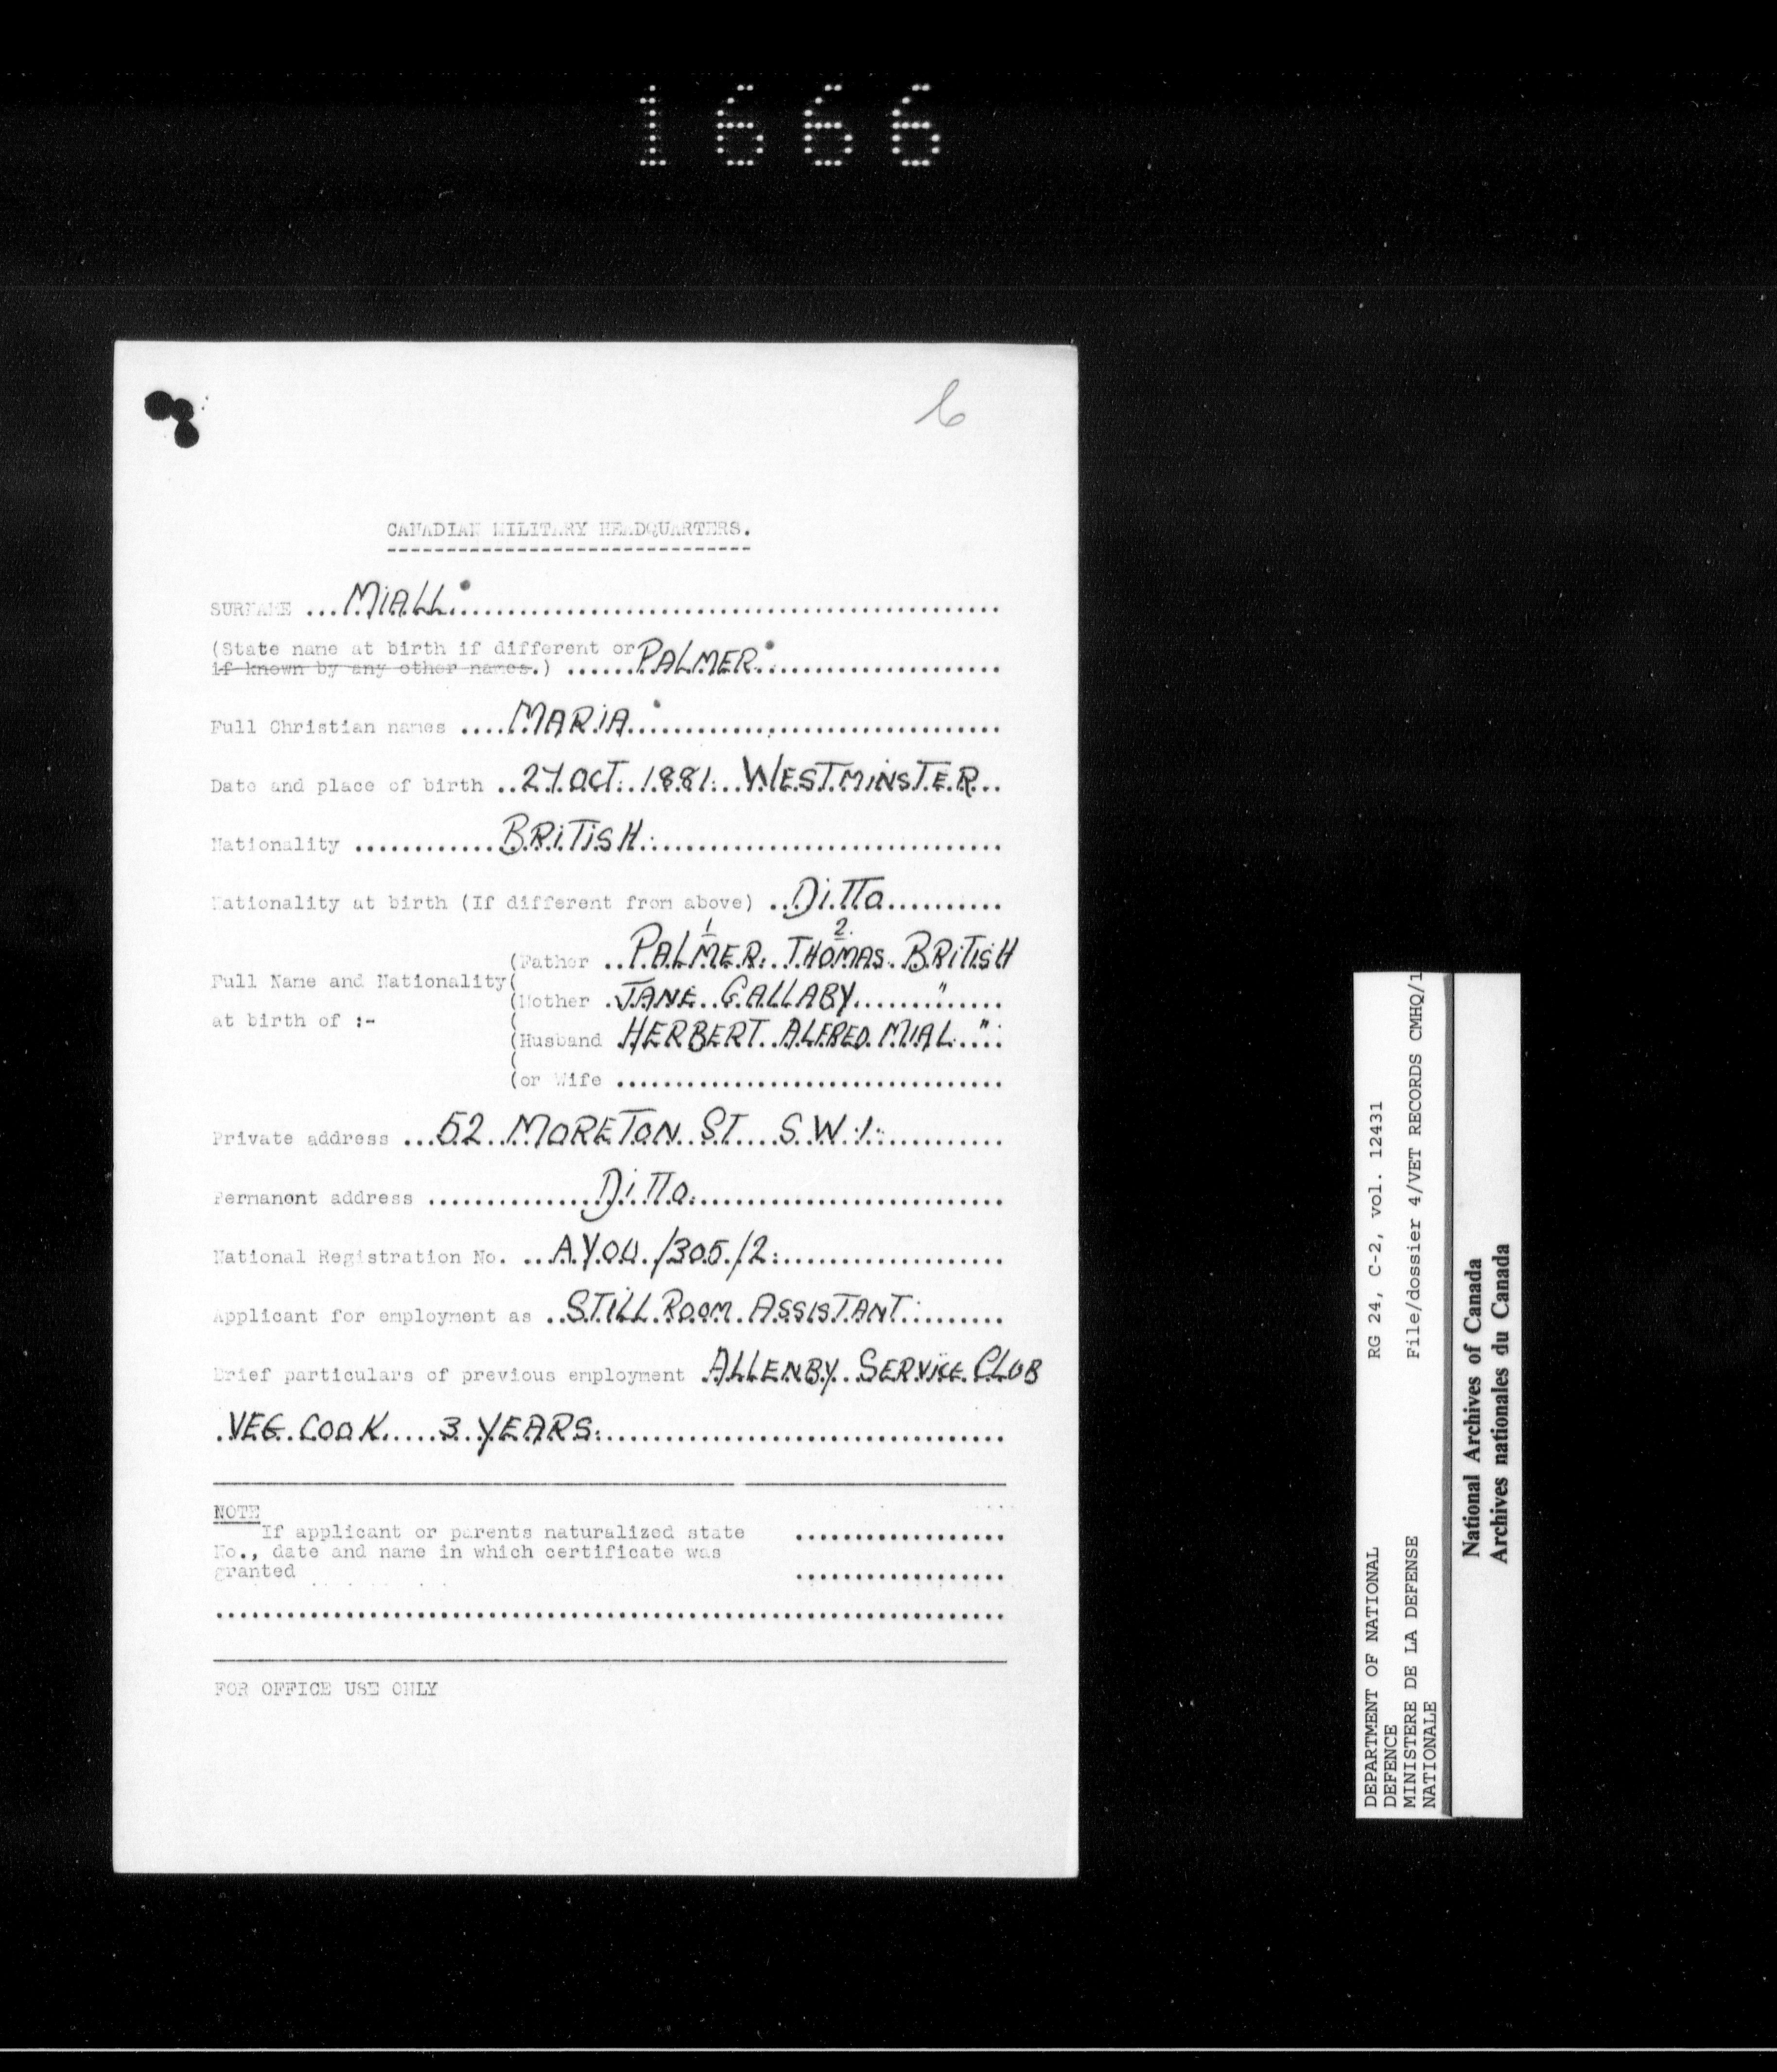 1666
6
CANADIAN MILITARY HEADQUARTERS.
SURNAME ...MiALL.
(State name at birth if different or PALMER
if known by any other names.)
Full Christian names ....MARiA
Date and place of birth ..27.OCT. 1881. WESTMiNSTER..
Nationality ............BRiTiSH.
Nationality at birth (If different from above) ..DiTTo
1 2.
(Father ..PALMER. THOMAS. BRiTiSH
Full Name and Nationality(
(Mother .JANE. GALLABY........"
at birth of :-
(Husband HERBERT. ALFRED. MIAL..."
(or Wife
Private address ...52. MORETON. ST. S.W.1.
Permanent address ..............DiTTo.
National Registration No. ...A.Y.O.U./305./2.
Applicant for employment as ..STiLL.ROOM.ASSISTANT.
Brief particulars of previous employment ALLENBY. SERVICE. CLUB
.VEG. COOK.....3.YEARS.
NOTE
If applicant or parents naturalized state
No., date and name in which certificate was
granted
FOR OFFICE USE ONLY
DEPARTMENT OF NATIONAL DEFENCE
MINISTERE DE LA DEFENSE NATIONALE
RG 24, C-2, vol. 12431
File/dossier 4/VET RECORDS CMHQ/1
National Archives of Canada
Archives nationales du Canada